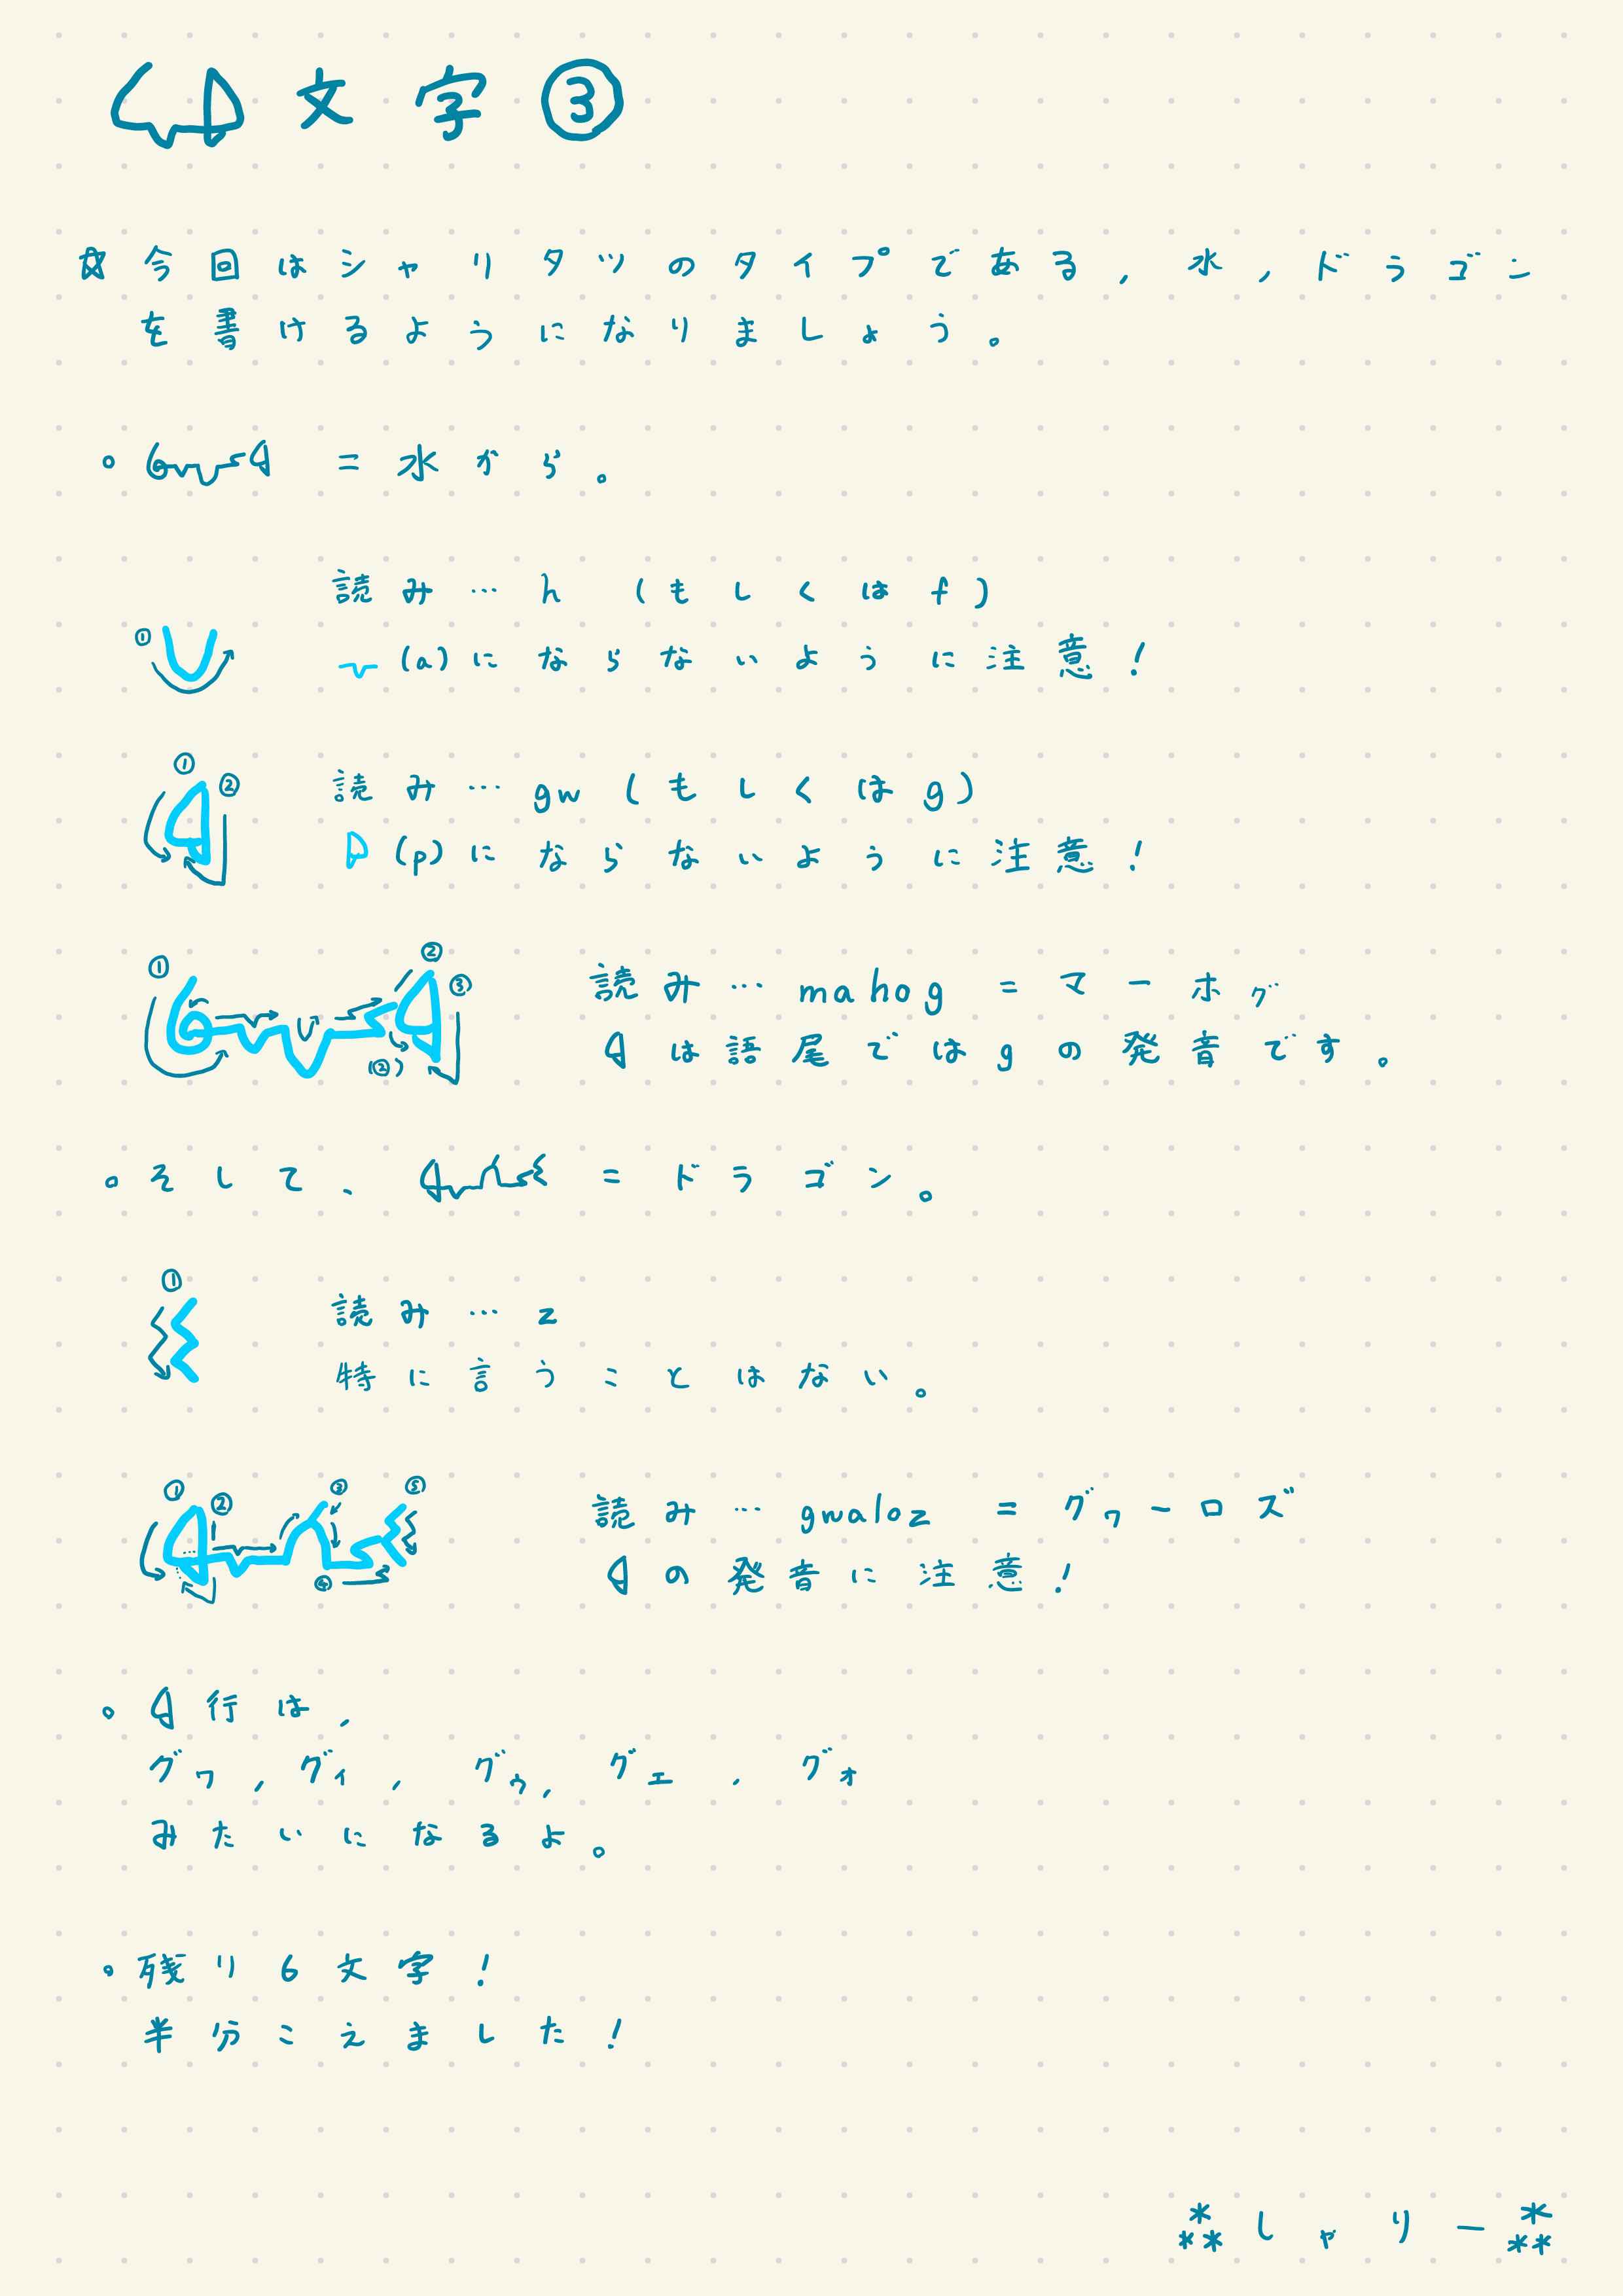 文字③
☆今回はシャリタツのタイプである,水,ドラゴン
を書けるようになりましょう。
= 水から。
読み…h (もしくはf)
① (a)にならないように注意!
① ②
読み…gw (もしくはg)
(p)にならないように注意!
① ② ③ (②)
読み…mahog = マーホグ
は語尾ではgの発音です。
そして、 = ドラゴン。
①
読み…z
特に言うことはない。
① ② ③ ④ ⑤
読み…gwaloz = グヮーロズ
の発音に注意!
行は,
グヮ,グィ,グゥ,グェ,グォ
みたいになるよ。
残り6文字!
半分こえました!
***しゃりー***